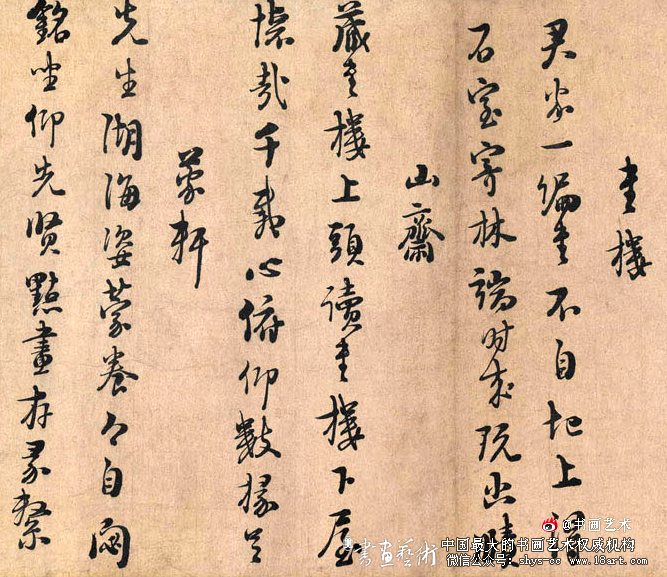 書樓
君家一編書不自圯上得
石室寄林端时來玩幽賾
山齋
藏書樓上頭讀書樓下屋
懷哉千載心俯仰數椽足
蒙軒
先生湖海姿蒙養今自閟
銘坐仰先賢點畫存彖繫
書畫藝術
@书画艺术
中国最大的书画艺术权威机构
微信公众号：shys-cc www.16art.com